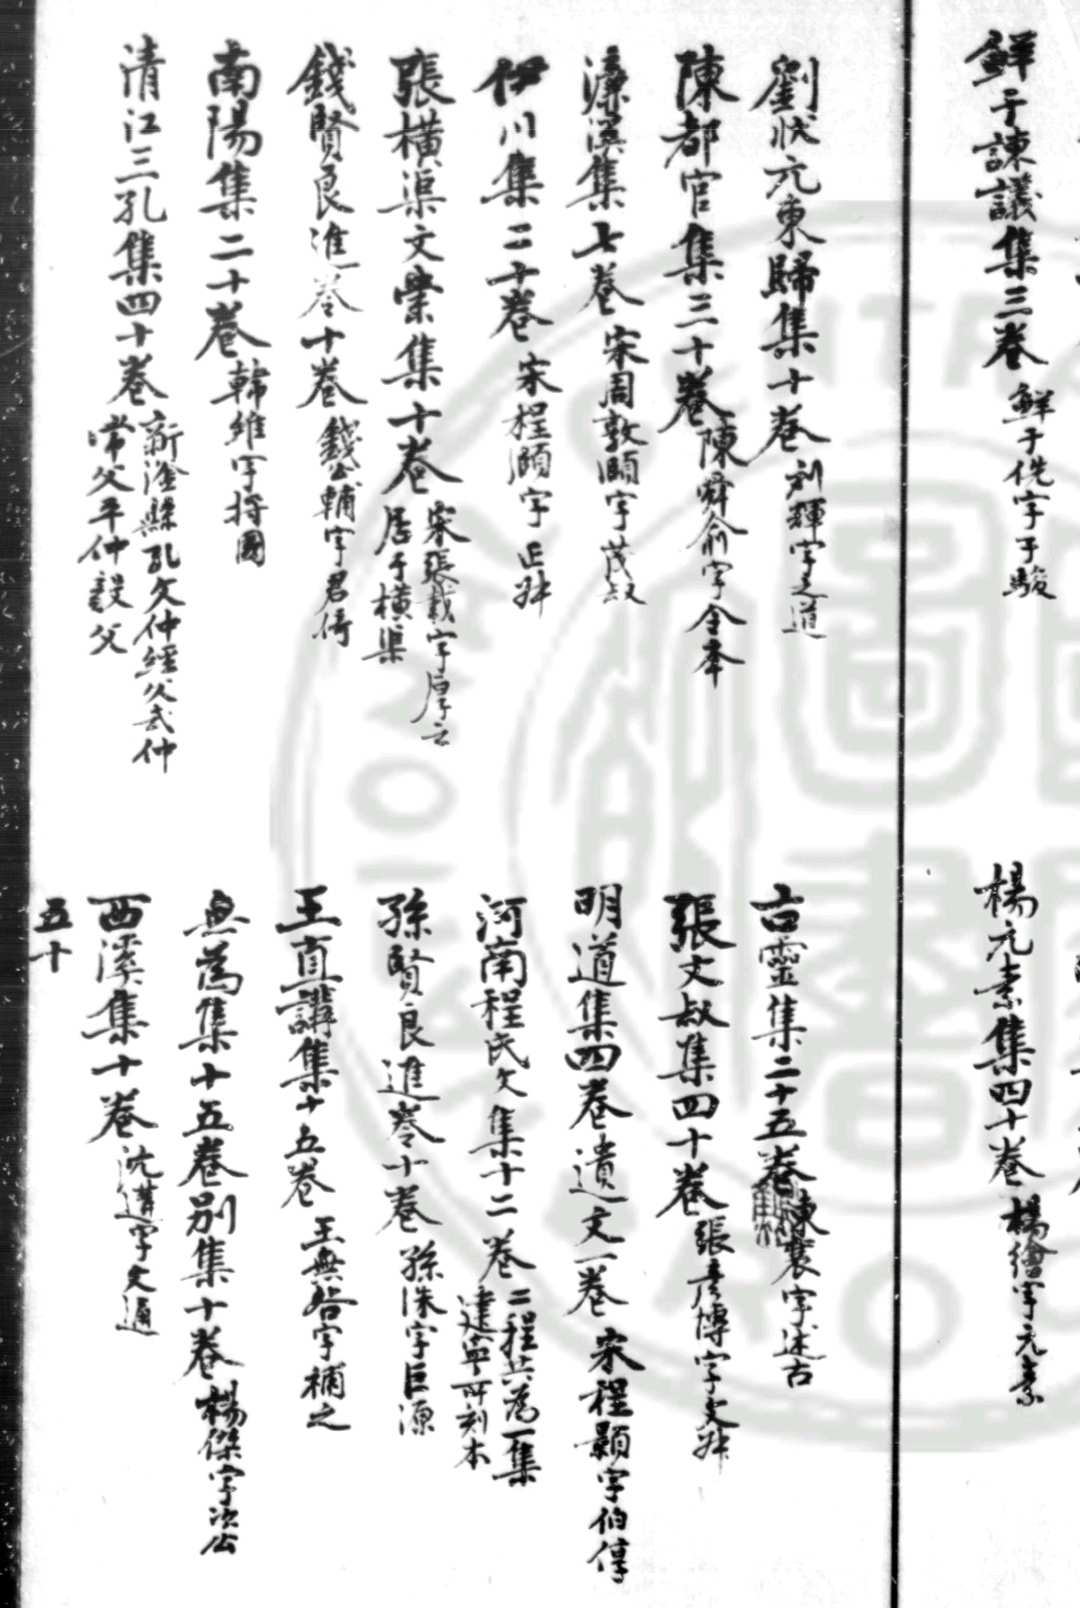 鮮于諫議集三卷 鮮于侁字子駿
楊元素集四十卷 楊繪字元素
劉狀元東歸集十卷 刘輝字之道
古靈集二十五卷 陳襄字述古
陳都官集三十卷 陳舜俞字令夲
張文叔集四十卷 張彥博字文叔
濂溪集七卷 宋周敦頤字茂叔
明道集四卷遺文一卷 宋程顥字伯淳
伊川集二十卷 宋程頤字正叔
河南程氏文集十二卷 二程共為一集
建寧所刻本
張橫渠文集十卷 宋張載字厚之
居于橫渠
孫賢良進卷十卷 孫洙字巨源
錢賢良進卷十卷 錢公輔字君倚
王直講集十五卷 王無咎字補之
南陽集二十卷 韓維字持國
無為集十五卷別集十卷 楊傑字次公
清江三孔集四十卷 新淦縣孔文仲經父武仲
常父平仲毅父
西溪集十卷 沈遘字文通
五十